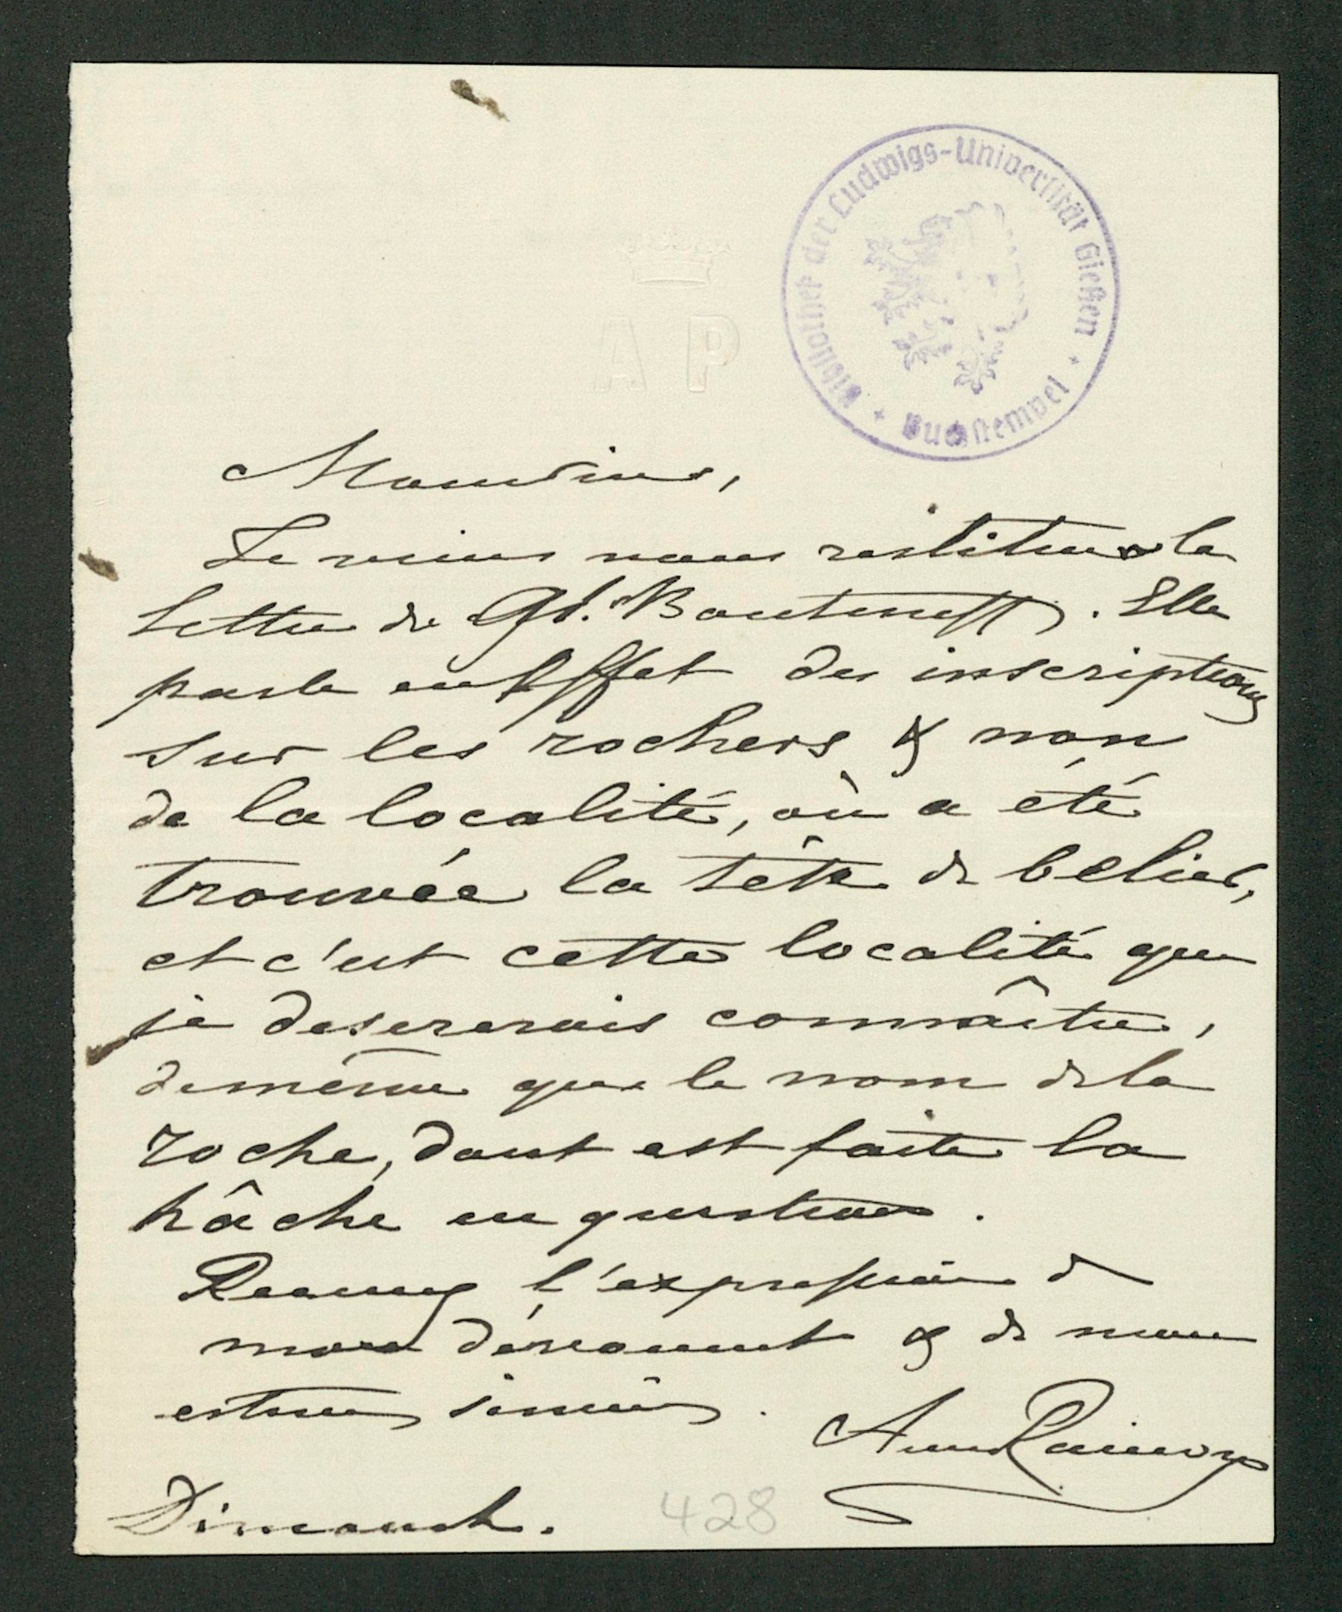 Bibliothek der Ludwigs-Universität Gießen
+ Buchstempel +
A P
Monsieur,
Je viens vous restituer la
lettre de Gd. Bouteneff. Elle
parle en effet des inscriptions
sur les rochers & non
de la localité, où a été
trouvée la tête de belier,
et c'est cette localité que
je desirerais connaître,
de même que le nom de la
roche, dont est faite la
hâche en question.
Recevez l'expression de
mon dévouement & de mon
estime sincère.
Dimanche.
428